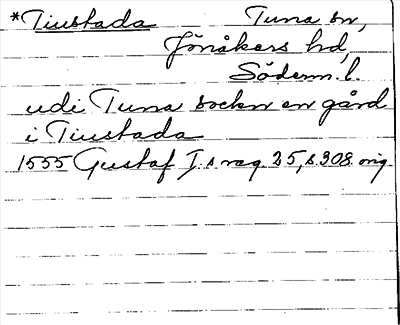 *Tiustada Tuna sn,
Jönåkers hd,
Söderm. l.
udi Tuna sockn en gård
i Tiustada
1555 Gustaf I.s reg 25, s 308 orig.